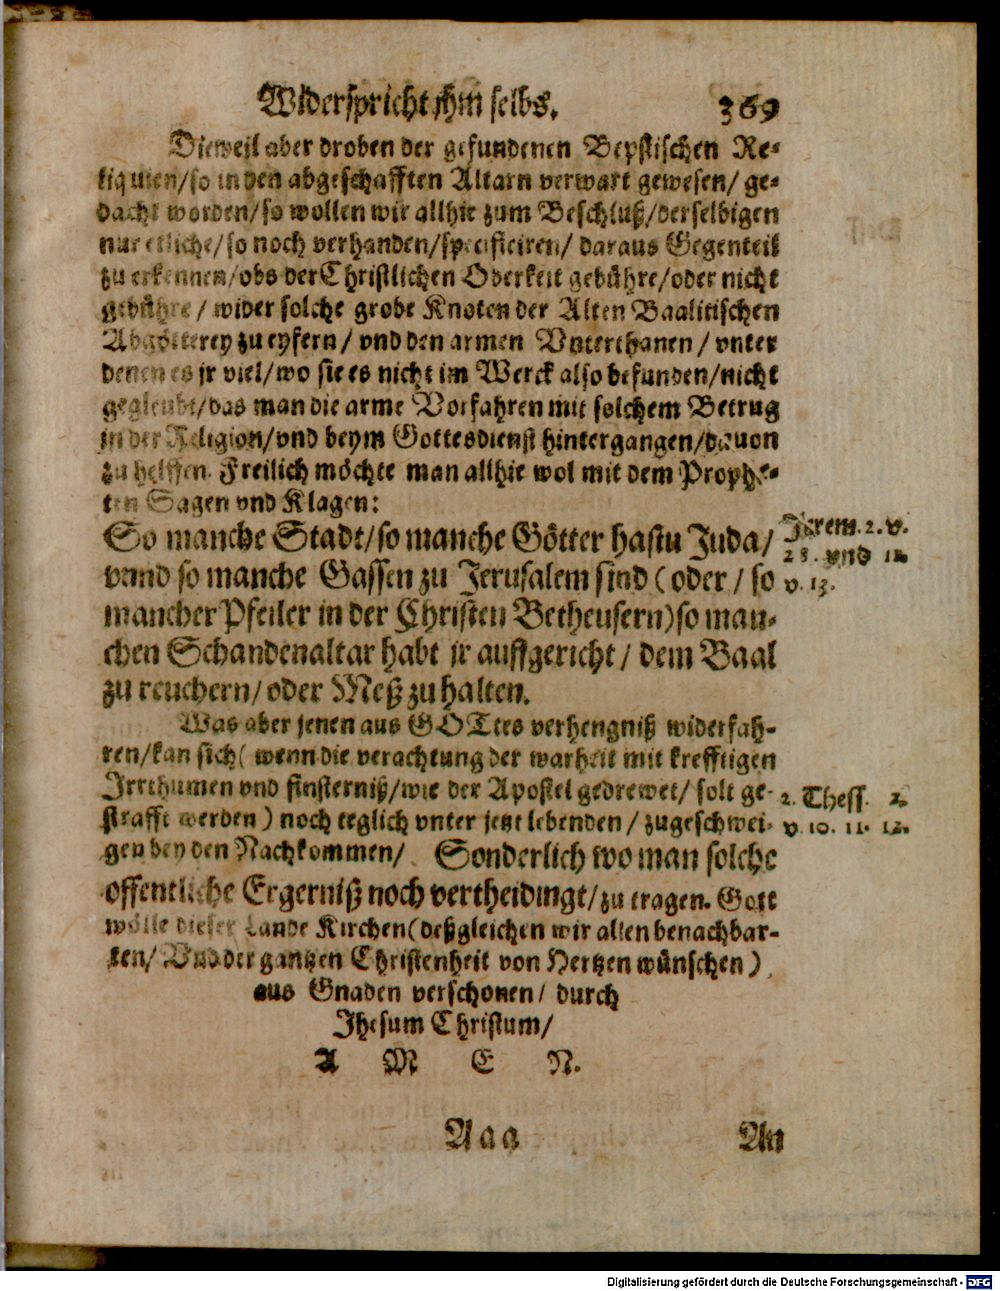 Widerspricht jhm selbs. 369
Dieweil aber droben der gefundenen Bepstischen Re-
liquien/so in den abgeschafften Altarn verwart gewesen/ ge-
dacht worden/so wollen wir allhie zum Beschluß/derselbigen
nur etliche/so noch verhanden/specificiren/ daraus Gegenteil
zu erkennen/obs der Christlichen Oberkeit gebühre/oder nicht
gebühre/ wider solche grobe Knoten der Alten Baalitischen
Abgötterey zu eyfern/ vnd den armen Vnterthanen/ vnter
denen es jr viel/wo sie es nicht im Werck also befunden/nicht
gegleubt/das man die arme Vorfahren mit solchem Betrug
in der Religion/vnd beym Gottesdienst hintergangen/dauon
zu helffen. Freilich möchte man allhie wol mit dem Prophe-
ten Sagen vnd Klagen:
So manche Stadt/so manche Götter hastu Juda/ Jerem. 2. v.
vnnd so manche Gassen zu Jerusalem sind (oder/ so 28. vnd 11.
mancher Pfeiler in der Christen Betheusern)so man- v. 13.
chen Schandenaltar habt jr auffgericht/ dem Baal
zu reuchern/oder Meß zu halten.
Was aber jenen aus GOTtes verhengniß widerfah-
ren/kan sich( wenn die verachtung der warheit mit krefftigen
Irrthumen vnd finsterniß/wie der Apostel gedrewet/ solt ge- 2. Thess. 2.
strafft werden) noch teglich vnter jetzt lebenden/ zugeschwei- v. 10. 11. 12.
gen bey den Nachkommen/ Sonderlich wo man solche
offentliche Ergerniß noch vertheidingt/zu tragen. Gott
wölle dieser Lande Kirchen(deßgleichen wir allen benachbar-
ten/ Vnd der gantzen Christenheit von Hertzen wünschen)
aus Gnaden verschonen/ durch
Jhesum Christum/
A M E N.
Aaa An
Digitalisierung gefördert durch die Deutsche Forschungsgemeinschaft - DFG